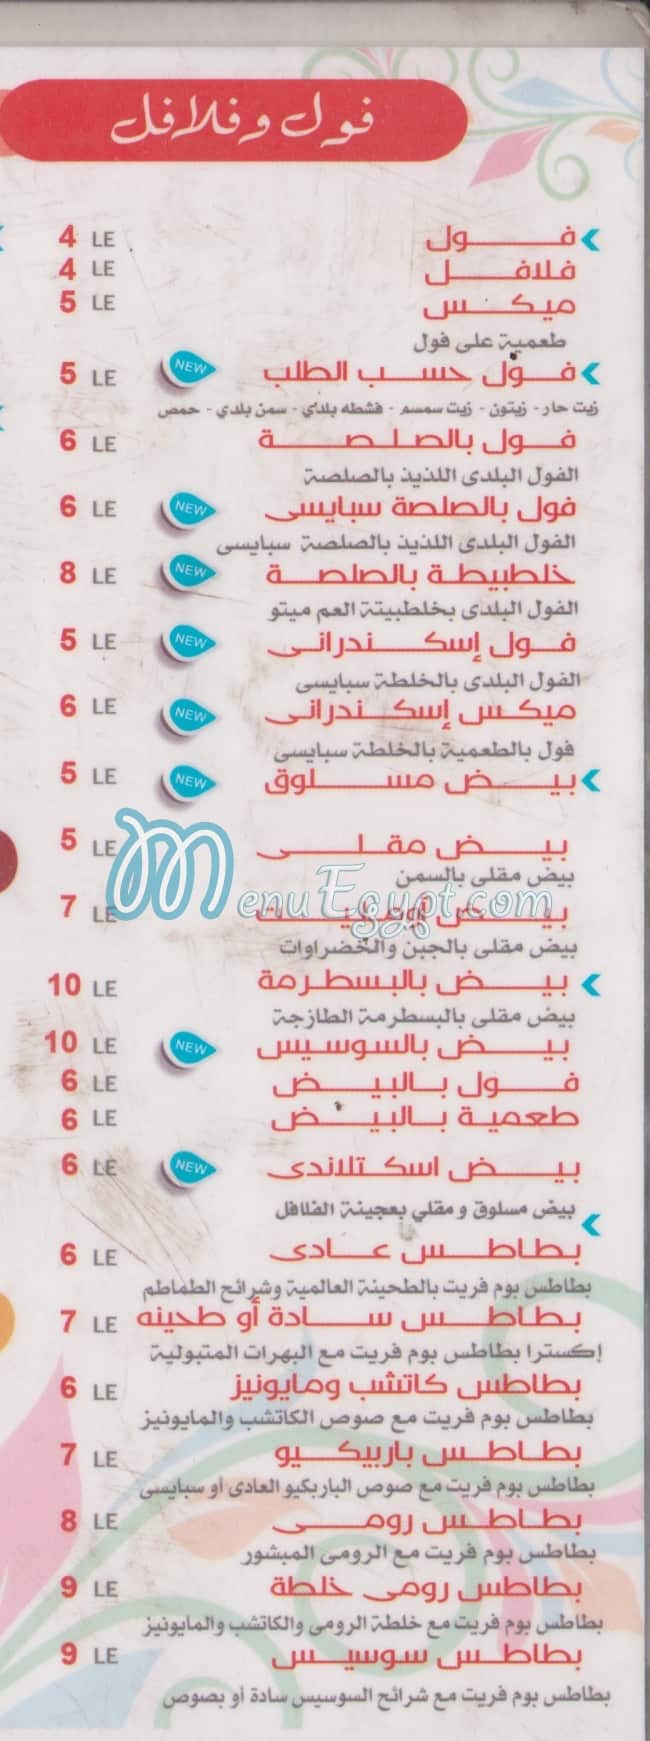 فول وفلافل
فول 4 LE
فلافل 4 LE
ميكس 5 LE
طعمية على فول
فول حسب الطلب NEW 5 LE
زيت حار - زيتون - زيت سمسم - قشطه بلدي - سمن بلدي - حمص
فول بالصلصة 6 LE
الفول البلدى اللذيذ بالصلصة
فول بالصلصة سبايسى NEW 6 LE
الفول البلدى اللذيذ بالصلصة سبايسى
خلطبيطة بالصلصة NEW 8 LE
الفول البلدى بخلطبيتة العم ميتو
فول إسكندرانى NEW 5 LE
الفول البلدى بالخلطة سبايسى
ميكس إسكندرانى NEW 6 LE
فول بالطعمية بالخلطة سبايسى
بيض مسلوق NEW 5 LE
بيض مقلى 5 LE
بيض مقلى بالسمن
MenuEgypt.com
بيض 7 LE
بيض مقلى بالجبن والخضراوات
بيض بالبسطرمة 10 LE
بيض مقلى بالبسطرمة الطازجة
بيض بالسوسيس NEW 10 LE
فول بالبيض 6 LE
طعمية بالبيض 6 LE
بيض اسكتلاندى NEW 6 LE
بيض مسلوق و مقلي بعجينة الفلافل
بطاطس عادى 6 LE
بطاطس بوم فريت بالطحينة العالمية وشرائح الطماطم
بطاطس سادة أو طحينه 7 LE
إكسترا بطاطس بوم فريت مع البهرات المتبولية
بطاطس كاتشب ومايونيز 6 LE
بطاطس بوم فريت مع صوص الكاتشب والمايونيز
بطاطس باربيكيو 7 LE
بطاطس بوم فريت مع صوص الباربكيو العادى أو سبايسى
بطاطس رومى 8 LE
بطاطس بوم فريت مع الرومى المبشور
بطاطس رومى خلطة 9 LE
بطاطس بوم فريت مع خلطة الرومى والكاتشب والمايونيز
بطاطس سوسيس 9 LE
بطاطس بوم فريت مع شرائح السوسيس سادة أو بصوص